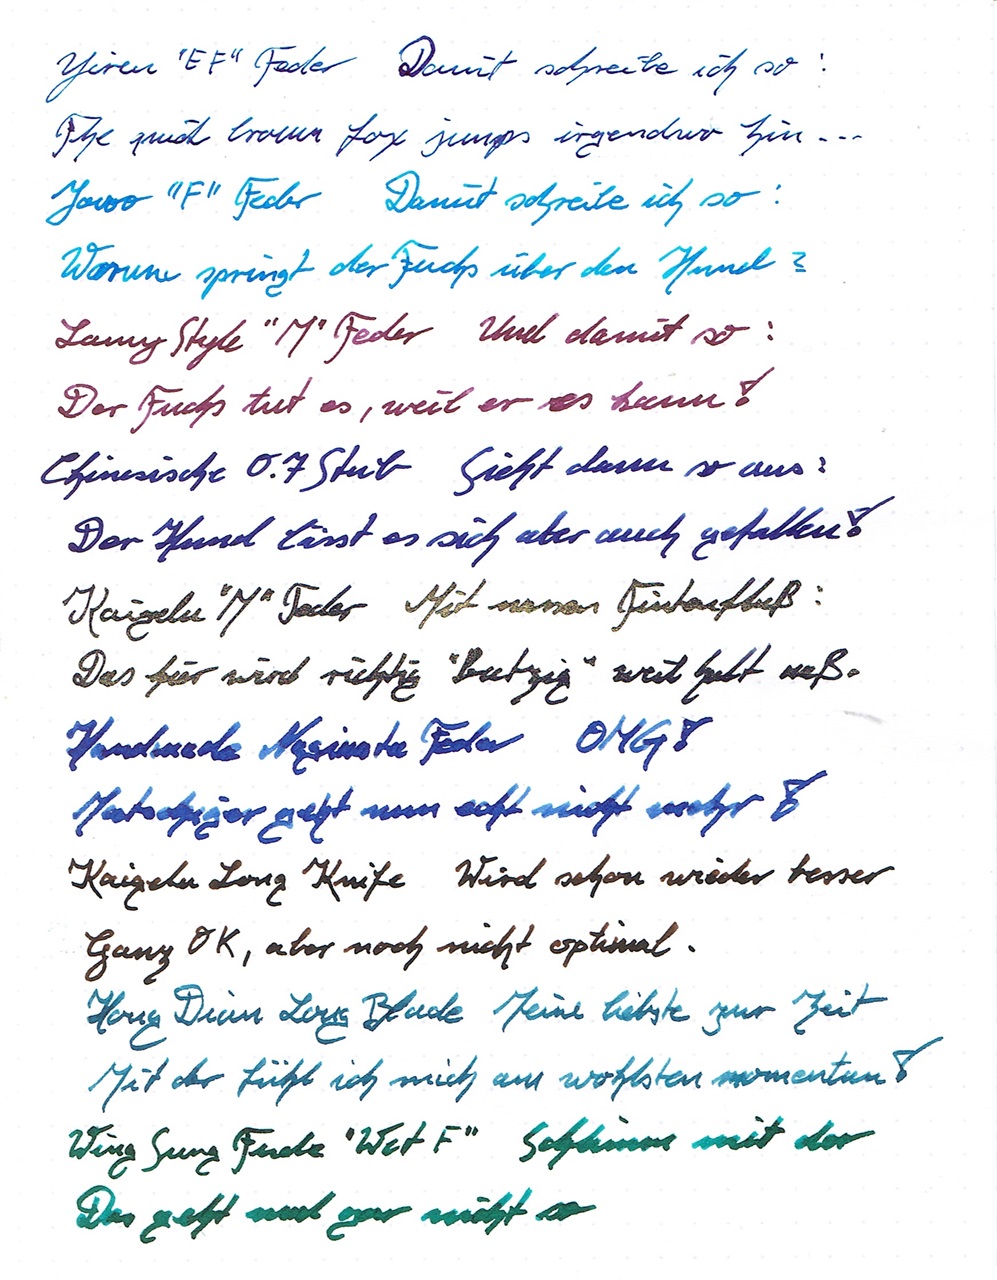 Yiren "EF" Feder Damit schreibe ich so :
The quick brown fox jumps irgendwo hin ...
Jowo "F" Feder Damit schreibe ich so :
Warum springt der Fuchs über den Hund ?
Lamy Style "M" Feder Und damit so :
Der Fuchs tut es, weil er es kann !
Chinesische 0.7 Stub Sieht dann so aus :
Der Hund lässt es sich aber auch gefallen !
Kaigelu "M" Feder Mit nassen Tintenfluß :
Das hier wird richtig "Batzig" weil halt naß.
Handmade Naginata Feder OMG !
Matschiger geht nun echt nicht mehr !
Kaigelu Long Knife Wird schon wieder besser
Ganz OK, aber noch nicht optimal .
Hong Dian Long Blade Meine liebste zur Zeit
Mit der fühl ich mich am wohlsten momentan !
Wing Sung "Wet F" Schlimm mit der
Das geht mal gar nicht so